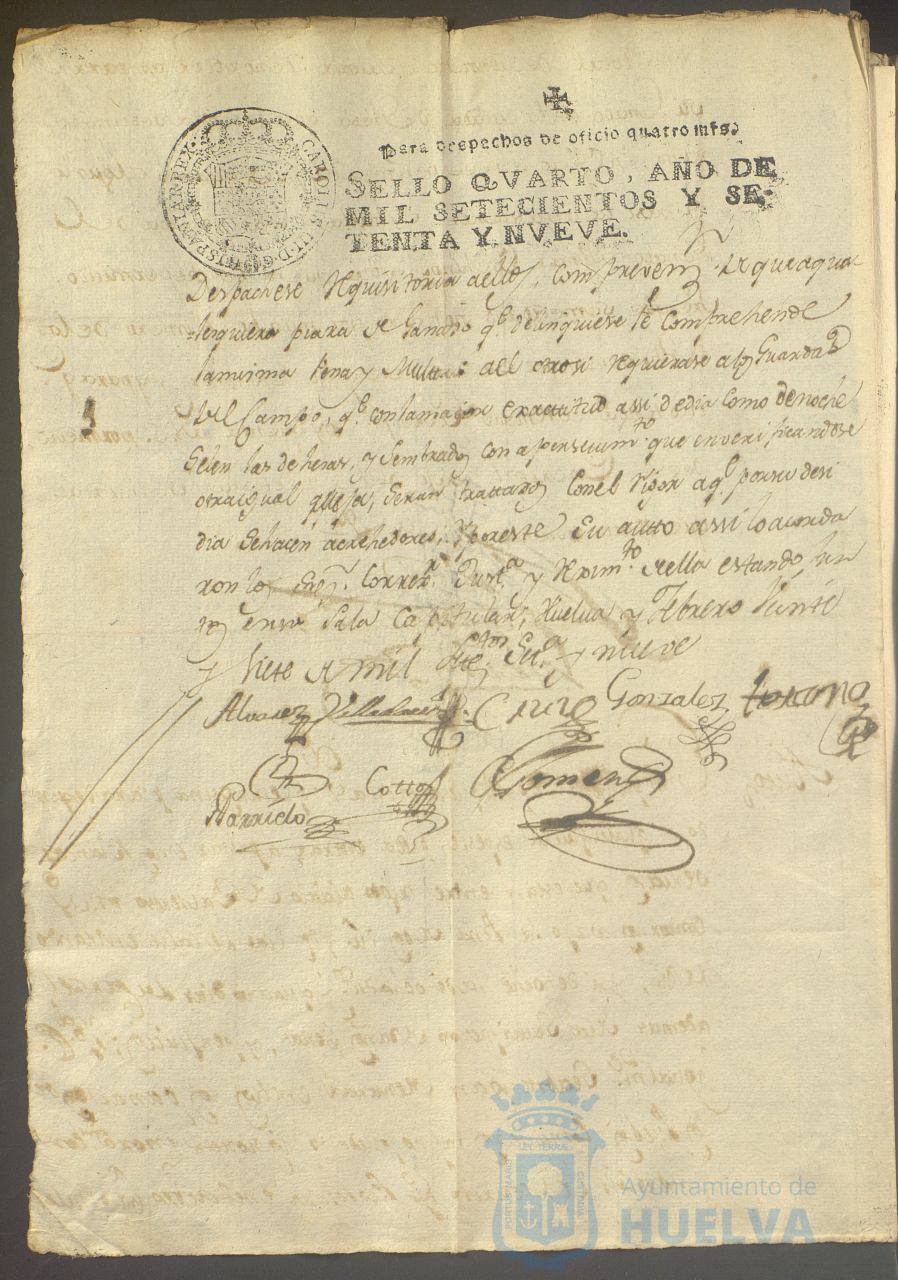 ✠
Para despachos de oficio quatro mrs.
SELLO QVARTO, AÑO DE
MIL SETECIENTOS Y SE-
TENTA Y NVEVE.
CAROLUS III D G HISPANIAR REX
Despachese Requisitoria aellos, com prevenn. de que aqua
lesquiera piara de Ganado qe. delinquiese le Comprehende
lamisma Pena y Multa: all otrosi requierase alos Guardas
del Campo, qe. conlamaior exactitud assi dedia como denoche
Selen las deheras, y Sembrados con apersevimto. que en verificandose
otraigual quexa, seran tratados Conel rigor aqe. porsu desi
dia Sehacen acrehedores; Y poreste Su autto assi loacorda
ron los Sres. Corregr. Justa. y Reximto. de ella estando Jun
tos ensu Sala Capitular, Huelva y Febrero Veinte
y Siete de mil Setos. Seta. y nueve
Alvarez Villada Cruz Gonzalez
Barrielo Cotto Gomenz
PORTUS MARIS
ET TERRAE
CUSTODIA
Ayuntamiento de
HUELVA